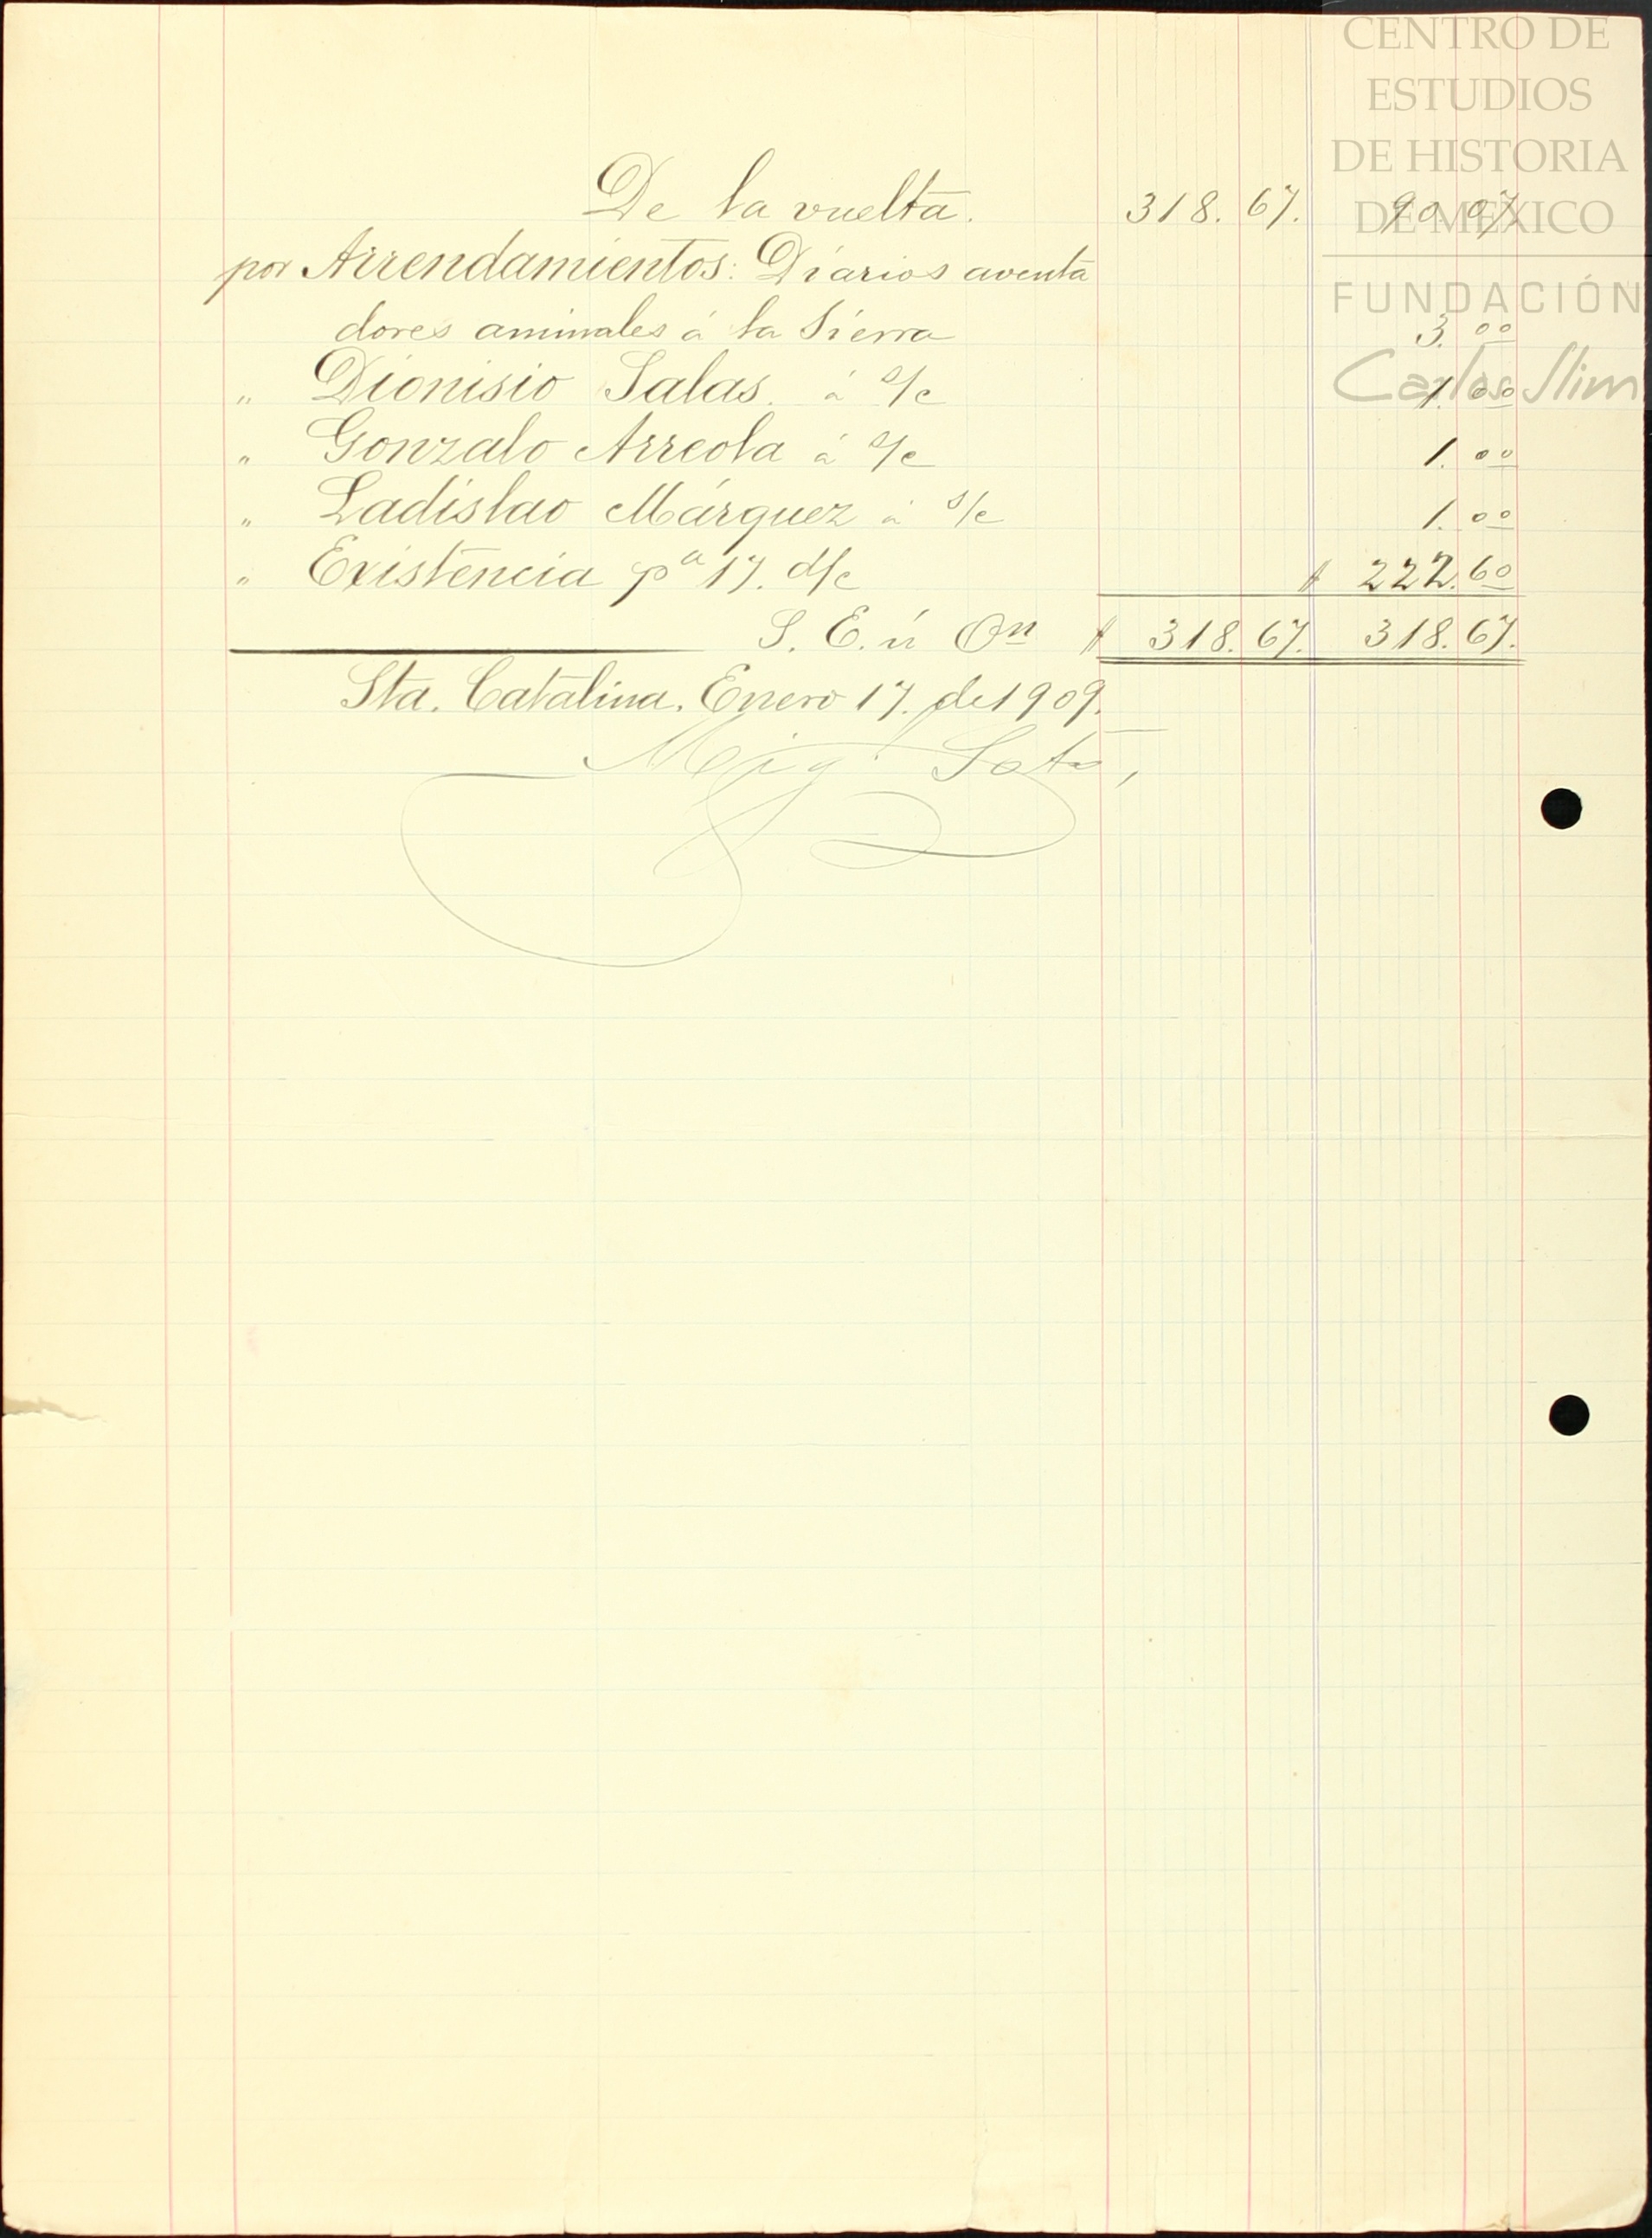 CENTRO DE
ESTUDIOS
DE HISTORIA
DE MÉXICO
FUNDACIÓN
Carlos Slim
De la vuelta. 318. 67. 90. 07
por Arrendamientos: Diarios aventa
dores animales á la Sierra 3. 00
„ Dionisio Salas. á s/c 1. 00
„ Gonzalo Arreola á s/c 1. 00
„ Ladislao Márquez á s/c 1. 00
„ Existencia pa 17. d/c $ 222. 60
S. E. ú On $ 318. 67. 318. 67.
Sta. Catalina. Enero 17. de 1909.
Mig. Soto,